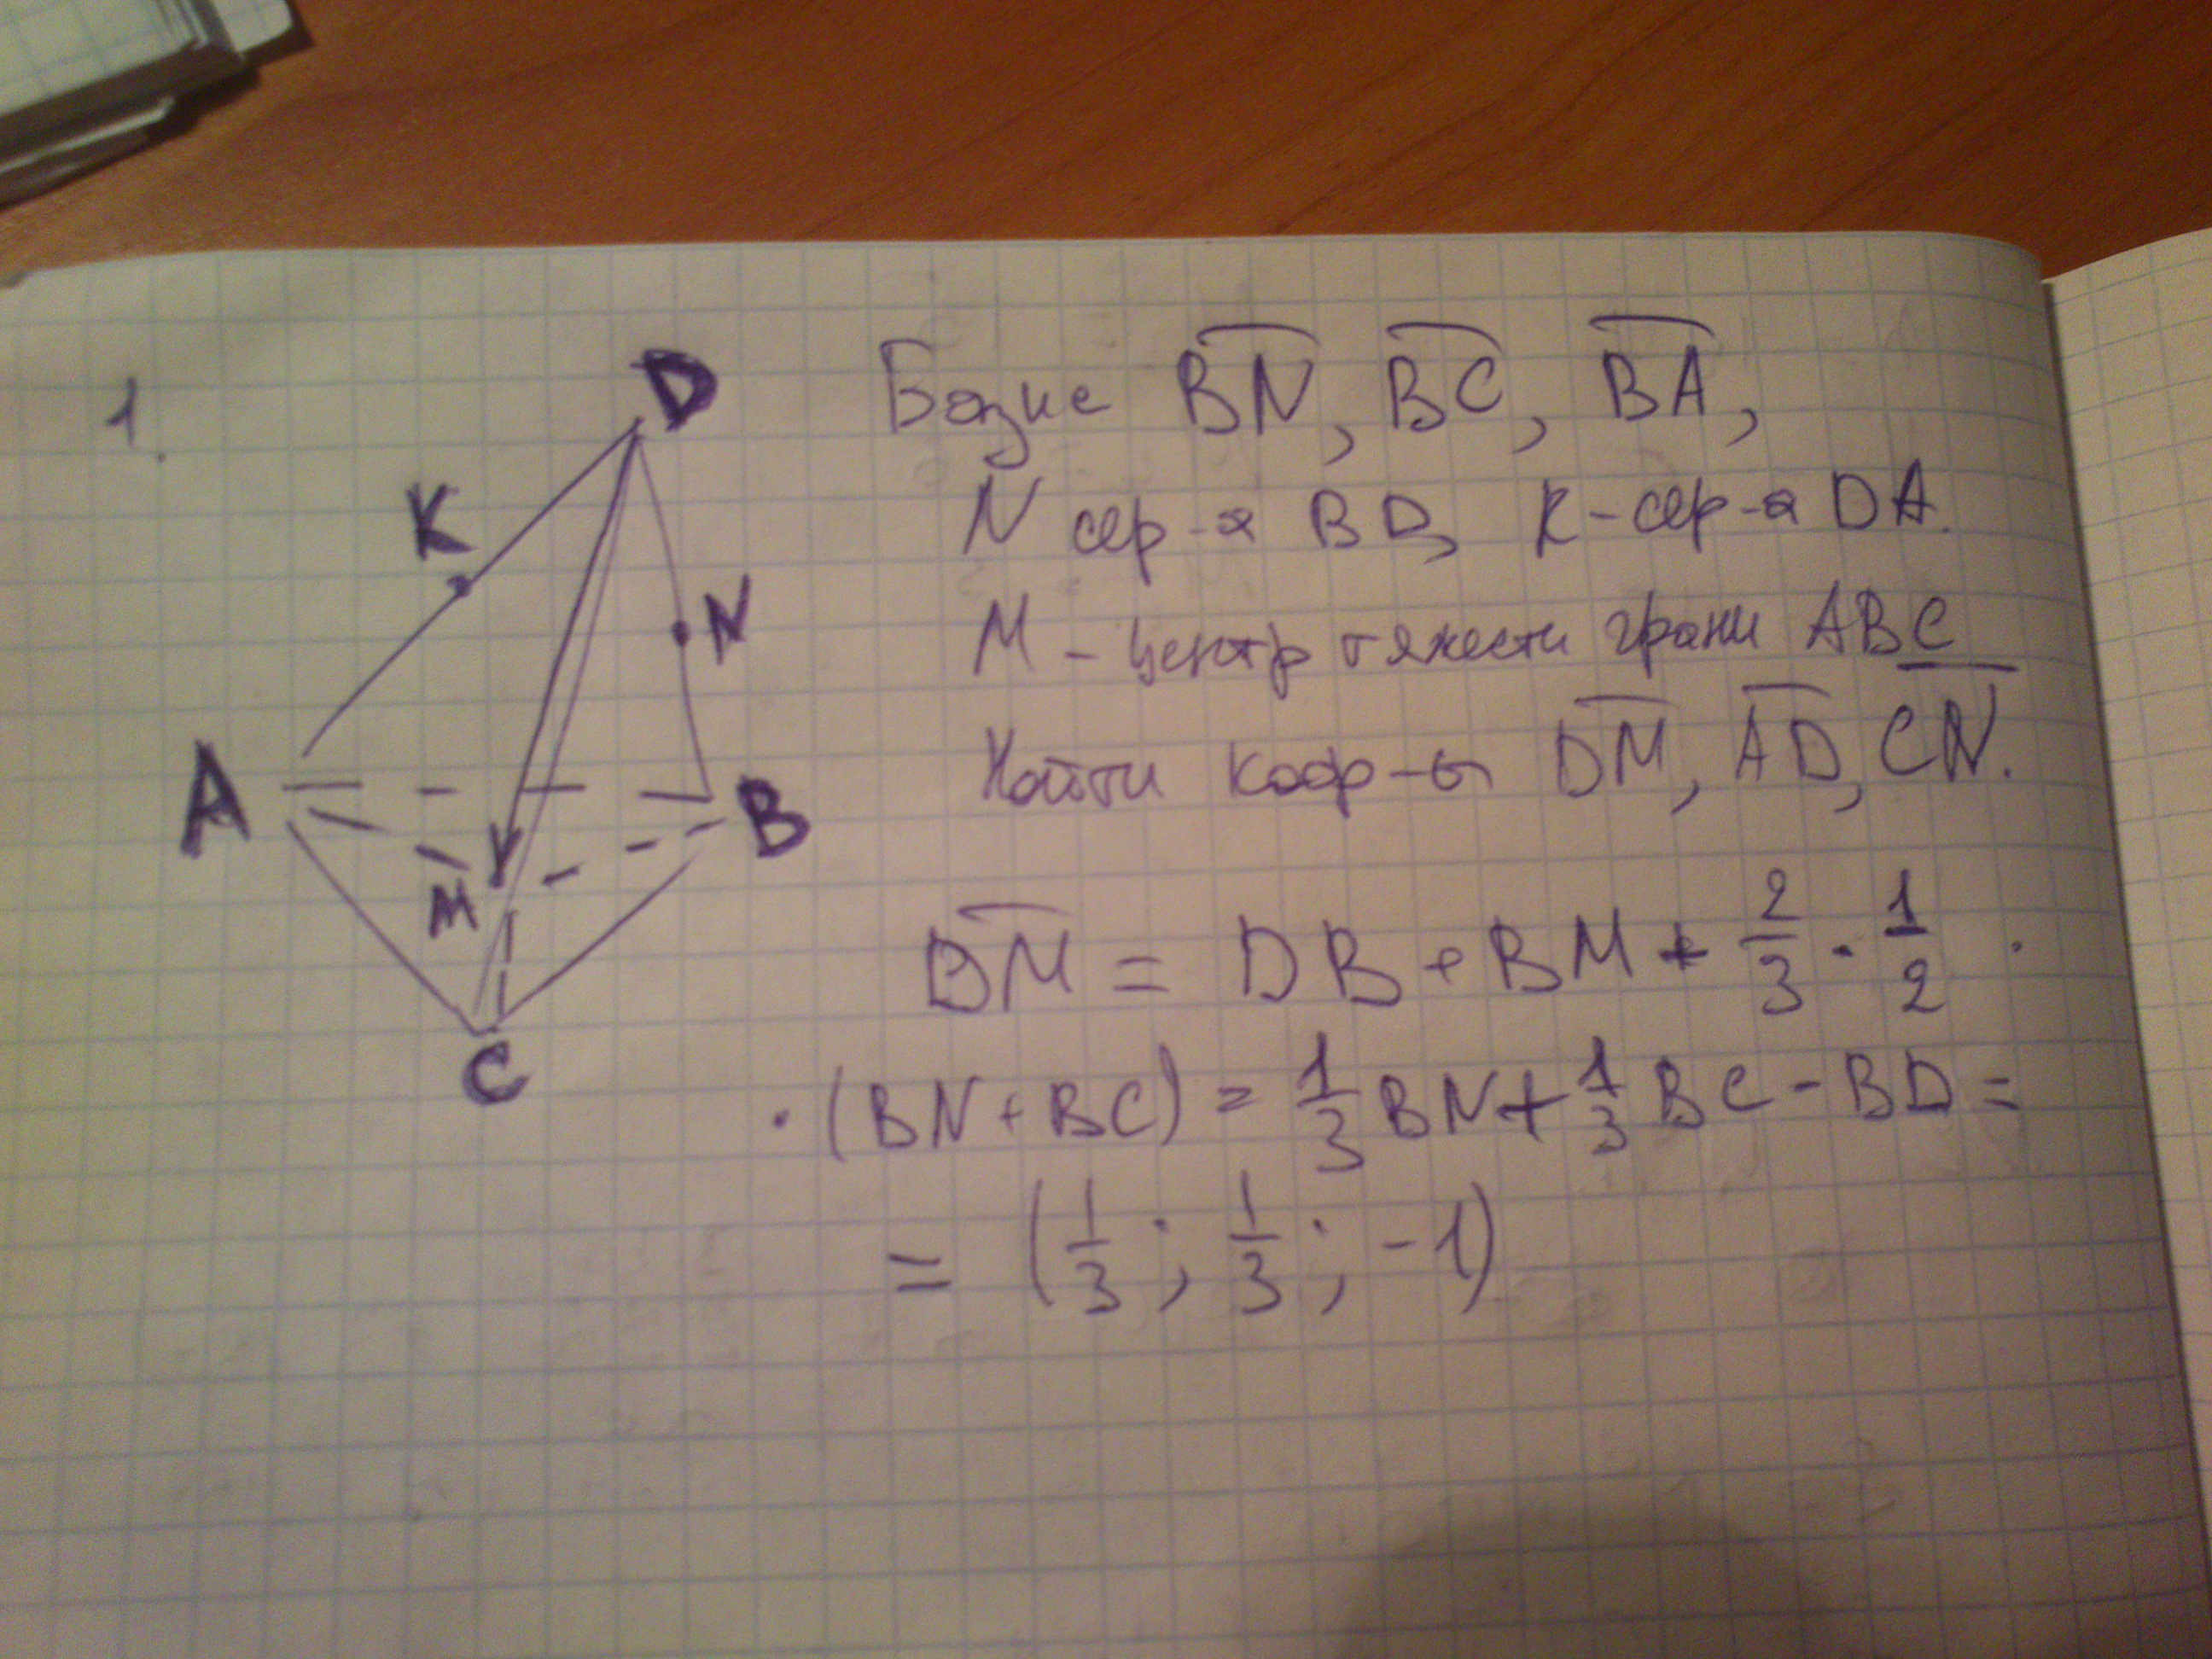 1.
D
K
N
A
B
M
C
Базис BN, BC, BA,
N сер-а BD, K-сер-а DA.
M - центр тяжести грани ABC
Найти коэф-ы DM, AD, CN.
DM = DB + BM + 2/3 · 1/2 ·
· (BN + BC) = 1/3 BN + 1/3 BC - BD =
= (1/3; 1/3; -1)